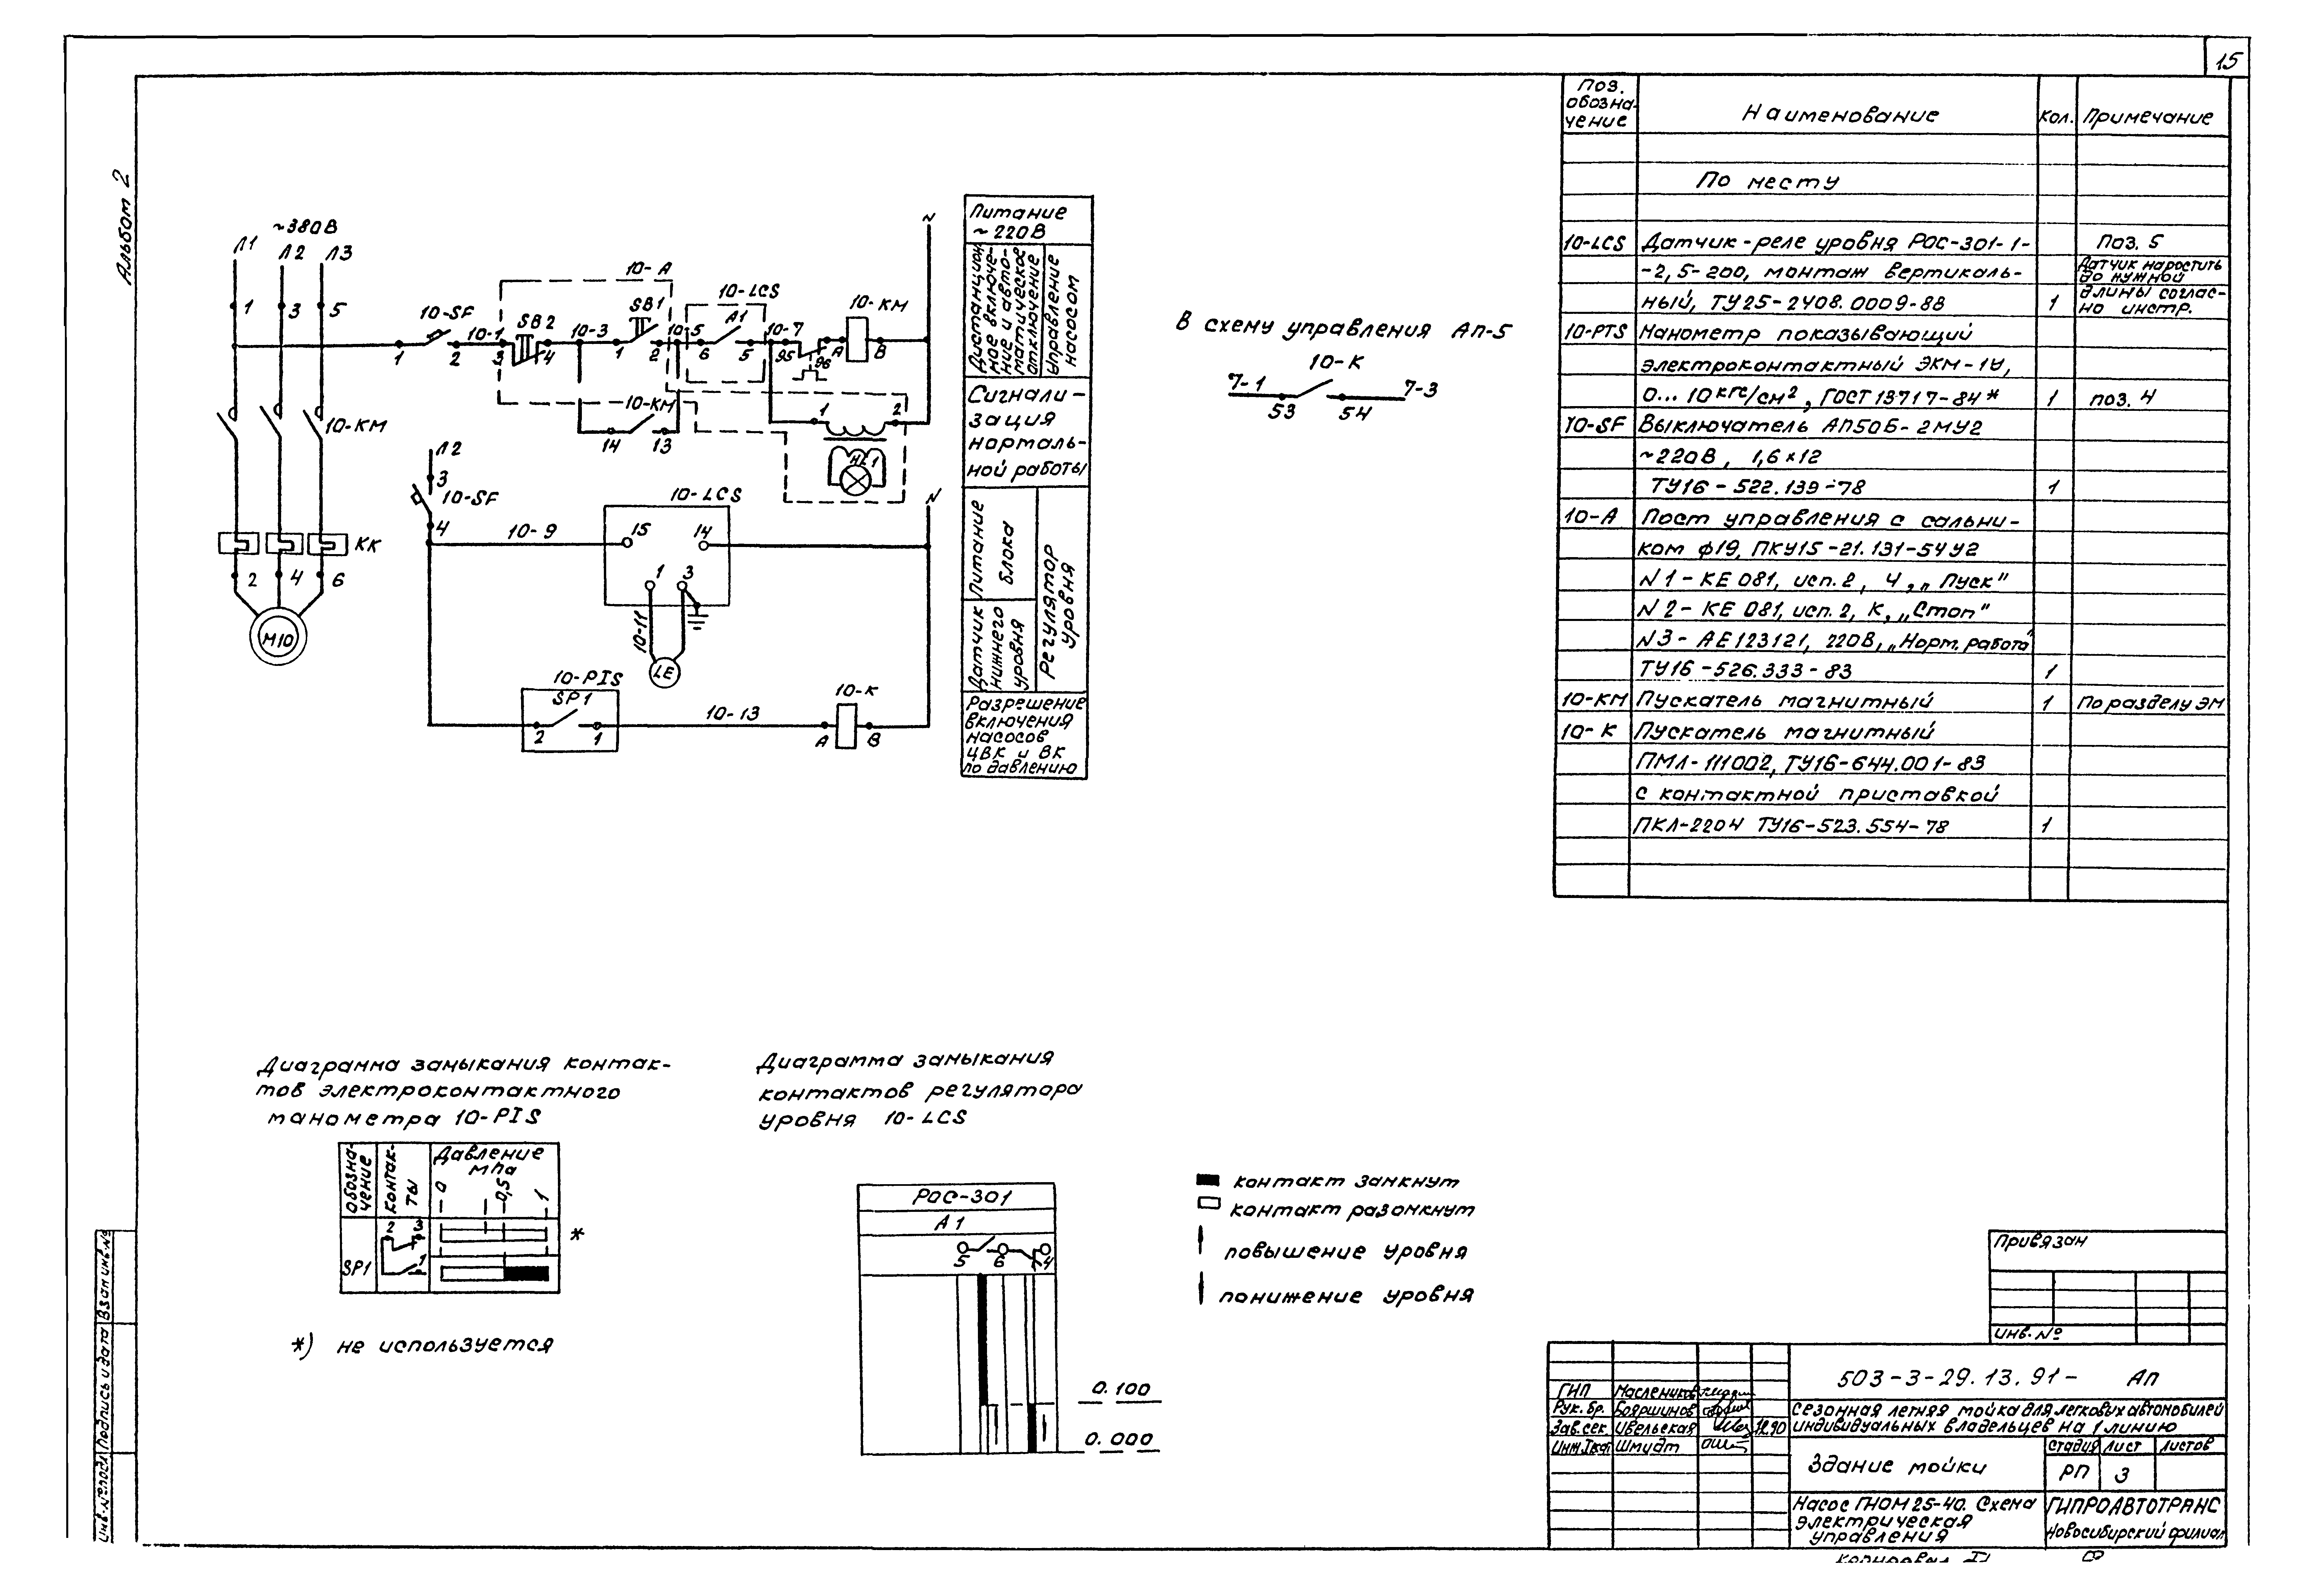 15
Альбом 2
~380В
Л1
Л2
Л3
1
3
5
10-SF
10-1
SB2
10-3
10-А
SB1
10-LCS
10-5
А1
10-7
10-КМ
N
1
2
3
4
1
2
6
5
95
96
А
В
10-КМ
14
13
1
2
HL1
10-КМ
КК
2
4
6
М10
Л2
3
10-SF
4
10-9
10-LCS
15
14
N
1
3
10-11
LE
10-PIS
SP1
2
1
10-13
10-К
А
В
Питание
~220В
Дистанцион
ное включе-
ние и авто-
матическое
отключение
Управление
насосом
Сигнали-
зация
нормаль-
ной работы
Питание
блока
Датчик
нижнего
уровня
Регулятор
уровня
Разрешение
включения
насосов
ЦВК и ВК
по давлению
В схему управления АП-5
10-К
7-1
7-3
53
54
Поз.
обозна-
чение
Наименование
Кол.
Примечание
По месту
10-LCS Датчик-реле уровня РОС-301-1- поз. 5
-2,5-200, монтаж вертикаль- Датчик наростить
до нужной
ный, ТУ25-2408.0009-88 1 длины соглас-
но инстр.
10-PTS Манометр показывающий
электроконтактный ЭКМ-1У,
0...10 кгс/см², ГОСТ 13717-84* 1 поз. 4
10-SF Выключатель АП50Б-2МУ2
~220В, 1,6×12
ТУ16-522.139-78 1
10-А Пост управления с сальни-
ком ф19, ПКУ15-21.131-54У2
N1-КЕ 081, исп. 2, Ч, „Пуск"
N2-КЕ 081, исп. 2, К, „Стоп"
N3-АЕ123121, 220В, „Норм. работа"
ТУ16-526.333-83 1
10-КМ Пускатель магнитный 1 По разделу ЭМ
10-К Пускатель магнитный
ПМЛ-111002, ТУ16-644.001-83
с контактной приставкой
ПКЛ-2204 ТУ16-523.554-78 1
Диаграмма замыкания контак-
тов электроконтактного
манометра 10-PIS
Обозна-
чение
Контак-
ты
Давление
мпа
0
0,5
1
2
3
1
SP1
*
*) не используется
Диаграмма замыкания
контактов регулятора
уровня 10-LCS
РОС-301
А1
5
6
4
0.100
0.000
контакт замкнут
контакт разомкнут
повышение уровня
понижение уровня
Привязан
Инв. №
503-3-29.13.91- АП
ГИП Маслеников
Рук. бр. Бояршинов
Зав. сек. Цвельская 12.90
Инж.Iкат Шмидт
Сезонная летняя мойка для легковых автомобилей
индивидуальных владельцев на 1 линию
Здание мойки
Стадия Лист Листов
РП 3
Насос ГНОМ 25-40. Схема
электрическая
управления
ГИПРОАВТОТРАНС
Новосибирский филиал
Копировал
Инв.№ подл. Подпись и дата Взам инв.№